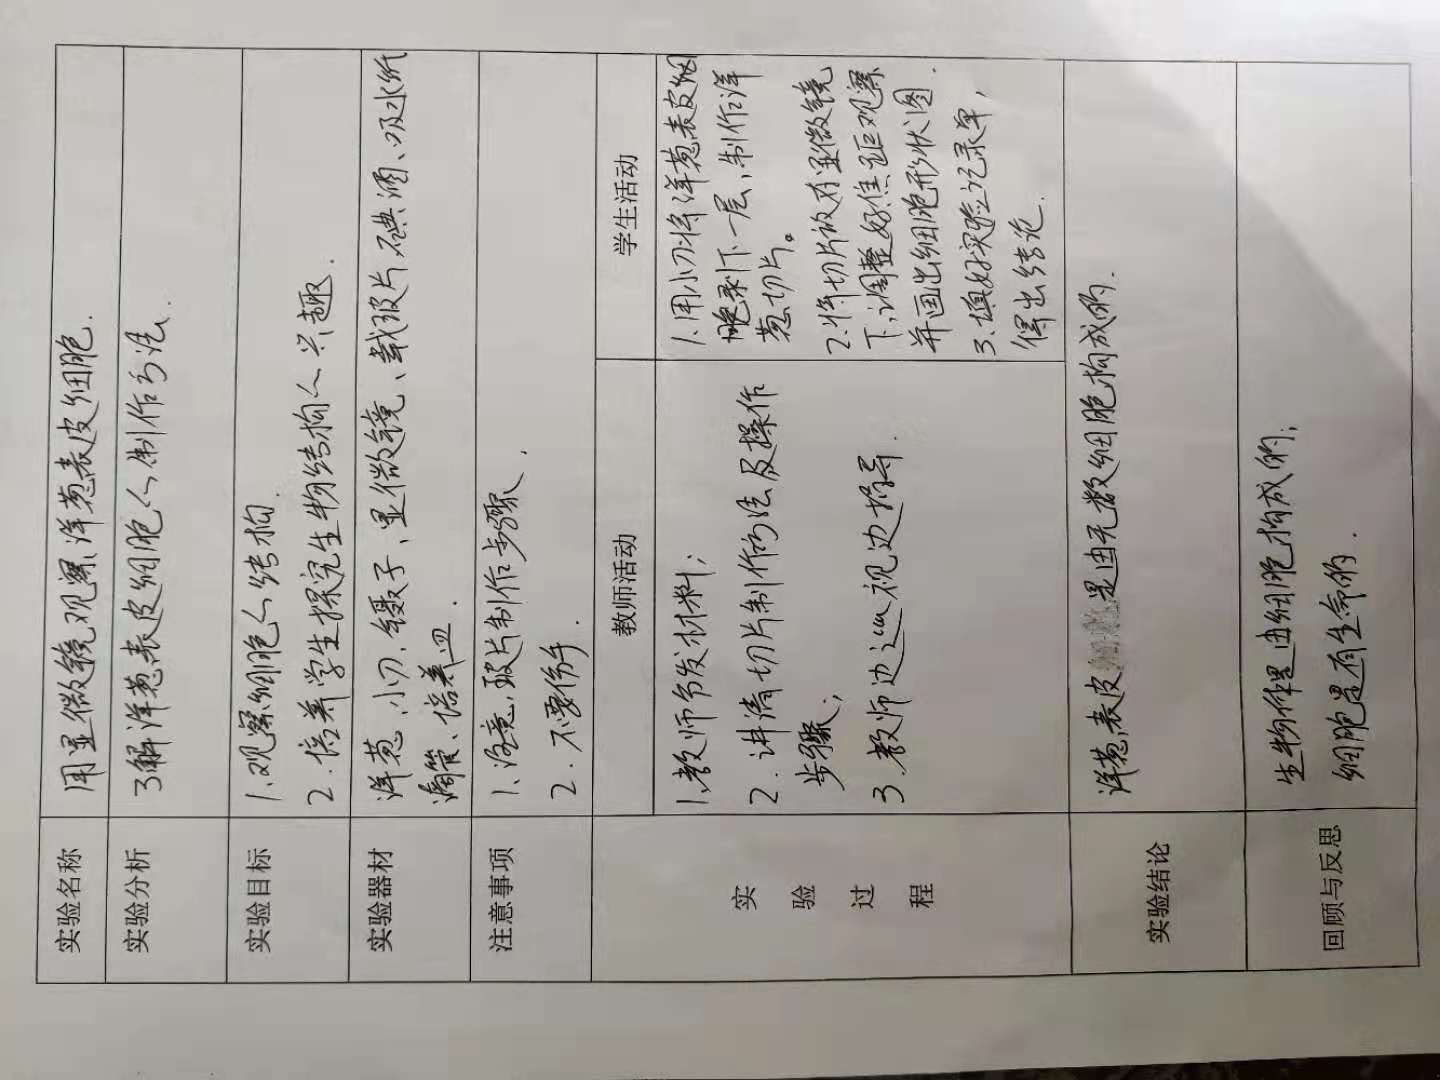 实验名称
用显微镜观察洋葱表皮细胞.
实验分析
了解洋葱表皮细胞的制作方法.
实验目标
1.观察细胞的结构.
2.培养学生探究生物结构的兴趣.
实验器材
洋葱、小刀、镊子、显微镜、载玻片、碘酒、吸水纸
滴管、培养皿.
注意事项
1、注意玻片制作步骤.
2.不要伤手
实验过程
教师活动
1.教师分发材料;
2.讲清切片制作方法及操作
步骤;
3.教师边巡视边指导.
学生活动
1.用小刀将洋葱表皮细
胞剥下一层,制作洋
葱切片。
2.将切片放在显微镜
下,调整好焦距观察
并画出细胞形状图.
3.填好实验记录单,
得出结论.
实验结论
洋葱表皮是由无数细胞构成的.
回顾与反思
生物体是由细胞构成的;
细胞是有生命的.